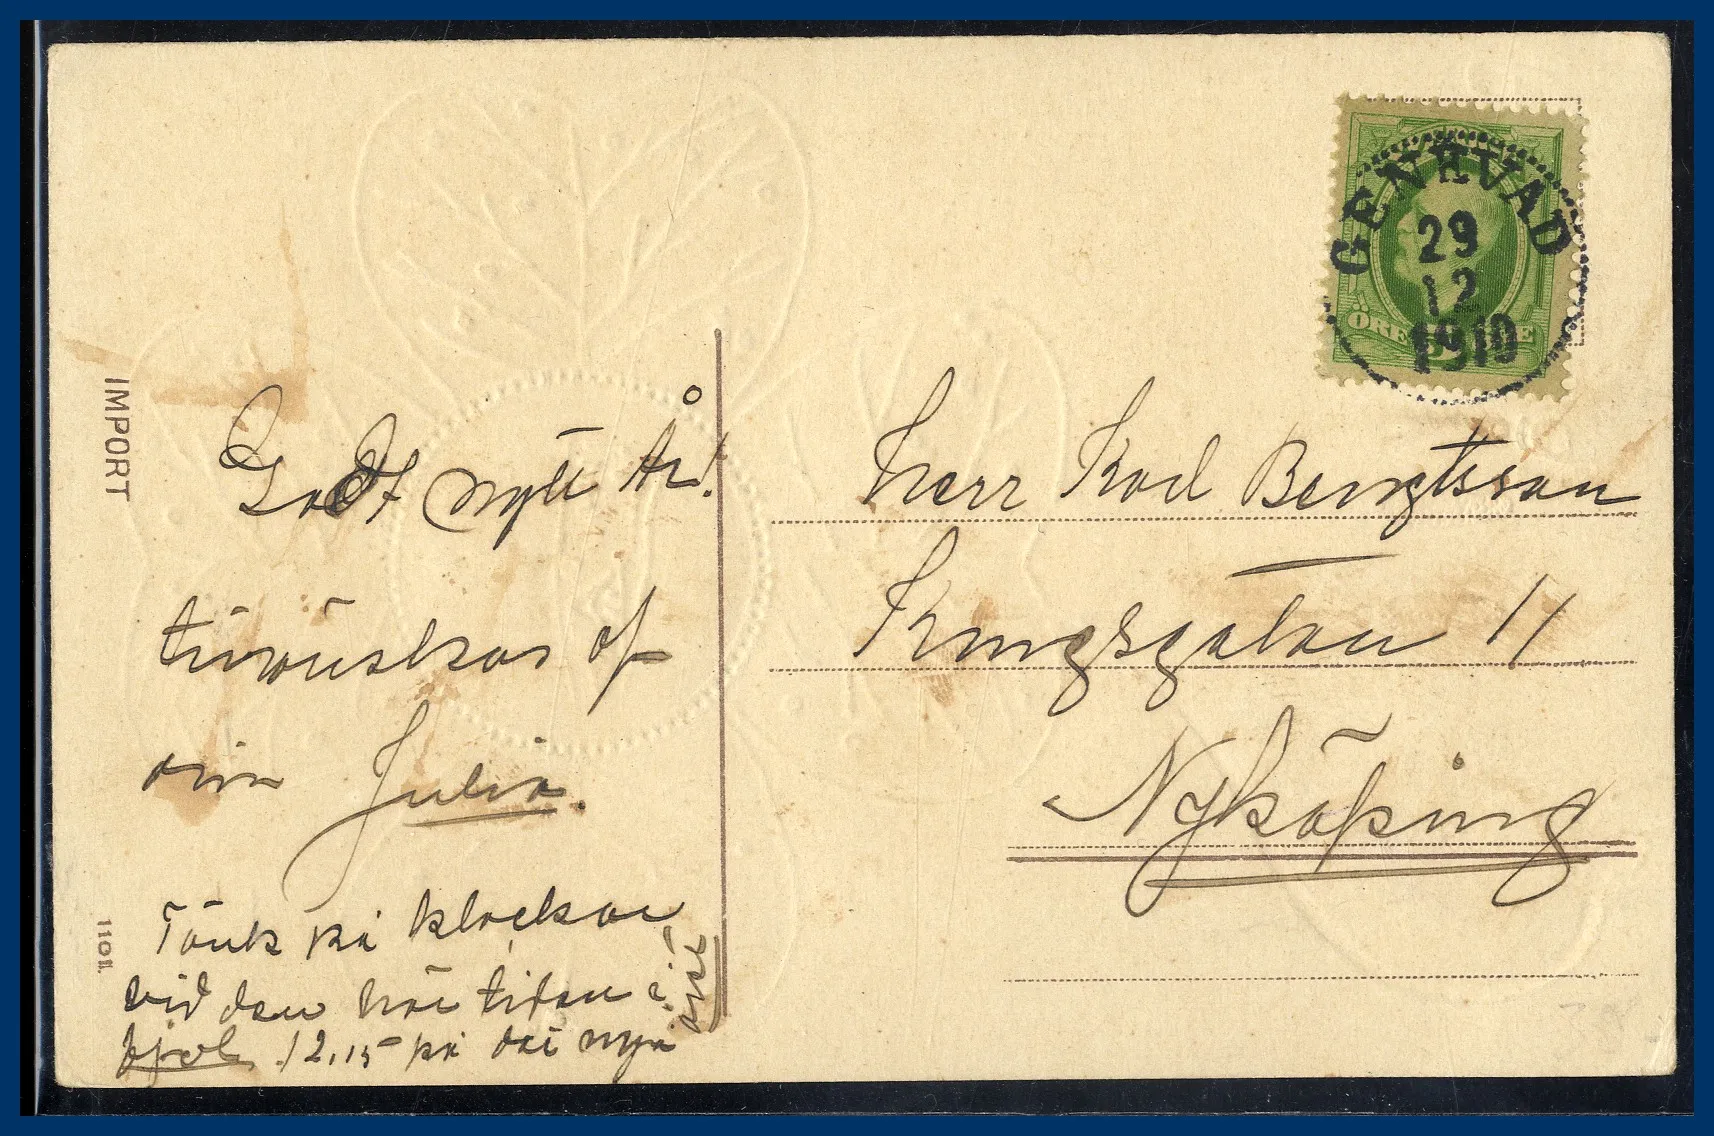 GENEVAD
29
12
1910
ÖRE
IMPORT
Godt nytt År!
tillönskas af
din Julia.
Tänk på klockan
vid den här tiden i
fjol 12,15 på det nya
året
1101.
Herr Karl Bengtsson
Kungsgatan 11
Nyköping